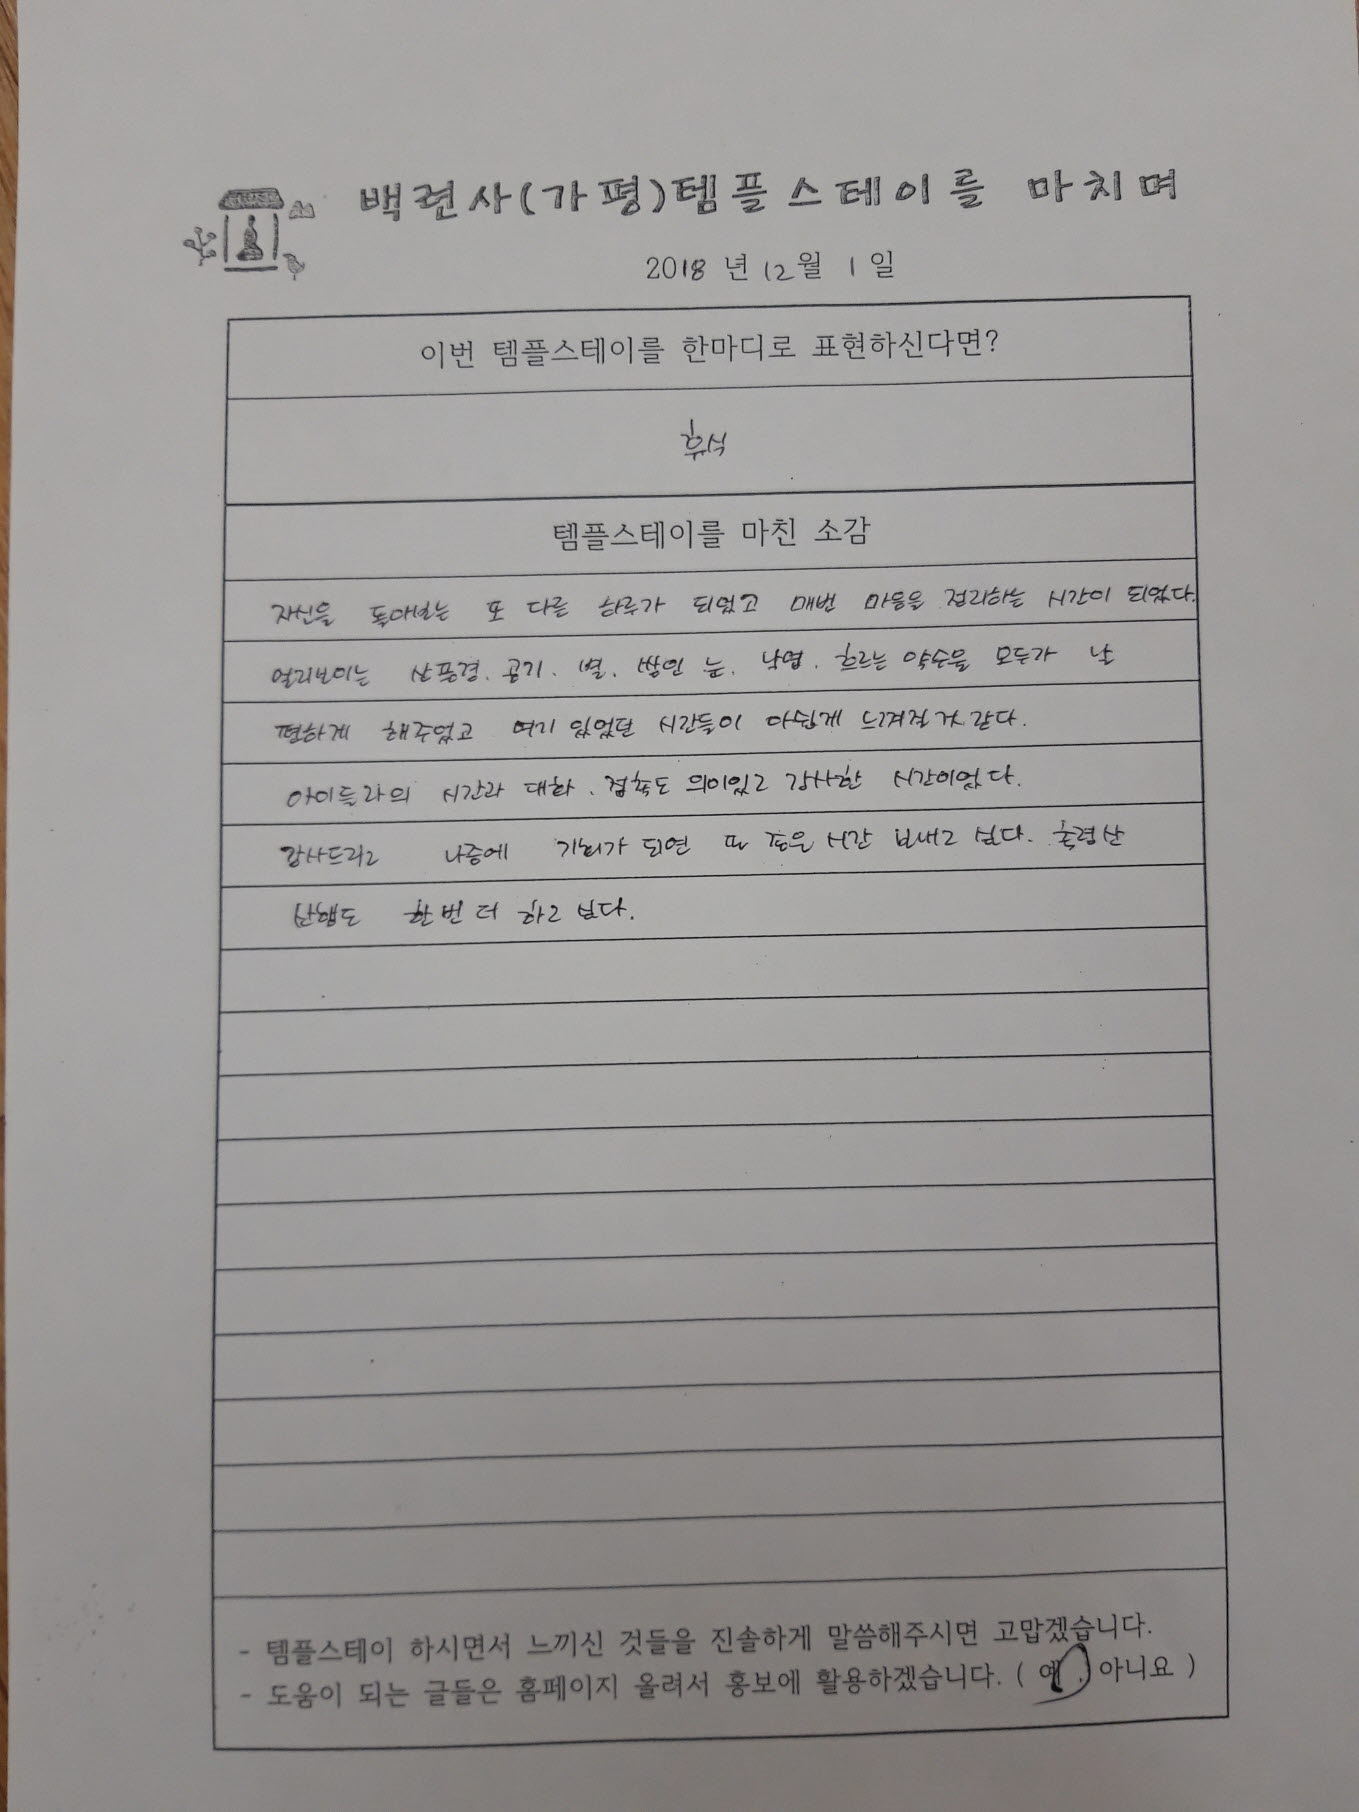 백련사(가평)템플스테이를 마치며
2018 년 12월 1일
이번 템플스테이를 한마디로 표현하신다면?
휴식
템플스테이를 마친 소감
자신을 돌아보는 또 다른 하루가 되었고 매번 마음을 정리하는 시간이 되었다.
멀리보이는 산풍경. 공기. 별. 쌓인 눈. 낙엽. 흐르는 약수물 모두가 날
편하게 해주었고 여기 있었던 시간들이 아쉽게 느껴질 것 같다.
아이들과의 시간과 대화. 접촉도 의미있고 감사한 시간이었다.
감사드리고 나중에 기회가 되면 또 좋은 시간 보내고 싶다. 축령산
산행도 한번 더 하고 싶다.
- 템플스테이 하시면서 느끼신 것들을 진솔하게 말씀해주시면 고맙겠습니다.
- 도움이 되는 글들은 홈페이지 올려서 홍보에 활용하겠습니다. ( 예 , 아니요 )